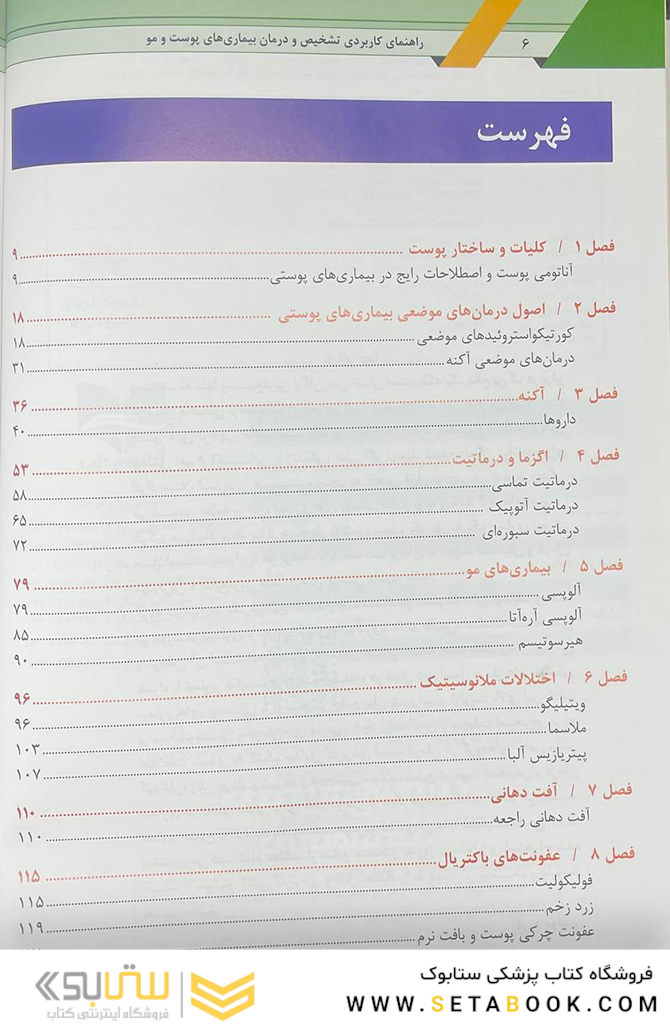 ۶ راهنمای کاربردی تشخیص و درمان بیماری‌های پوست و مو
فهرست
فصل ۱ / کلیات و ساختار پوست ........ ۹
آناتومی پوست و اصطلاحات رایج در بیماری‌های پوستی ........ ۹
فصل ۲ / اصول درمان‌های موضعی بیماری‌های پوستی ........ ۱۸
کورتیکواستروئیدهای موضعی ........ ۱۸
درمان‌های موضعی آکنه ........ ۳۱
فصل ۳ / آکنه ........ ۳۶
داروها ........ ۴۰
فصل ۴ / اگزما و درماتیت ........ ۵۳
درماتیت تماسی ........ ۵۸
درماتیت آتوپیک ........ ۶۵
درماتیت سبوره‌ای ........ ۷۲
فصل ۵ / بیماری‌های مو ........ ۷۹
آلوپسی ........ ۷۹
آلوپسی آره‌آتا ........ ۸۵
هیرسوتیسم ........ ۹۰
فصل ۶ / اختلالات ملانوسیتیک ........ ۹۶
ویتیلیگو ........ ۹۶
ملاسما ........ ۱۰۳
پیتریازیس آلبا ........ ۱۰۷
فصل ۷ / آفت دهانی ........ ۱۱۰
آفت دهانی راجعه ........ ۱۱۰
فصل ۸ / عفونت‌های باکتریال ........ ۱۱۵
فولیکولیت ........ ۱۱۵
زرد زخم ........ ۱۱۹
عفونت چرکی پوست و بافت نرم ........
فروشگاه کتاب پزشکی ستابوک
WWW.SETABOOK.COM
ستابوک
فروشگاه اینترنتی کتاب